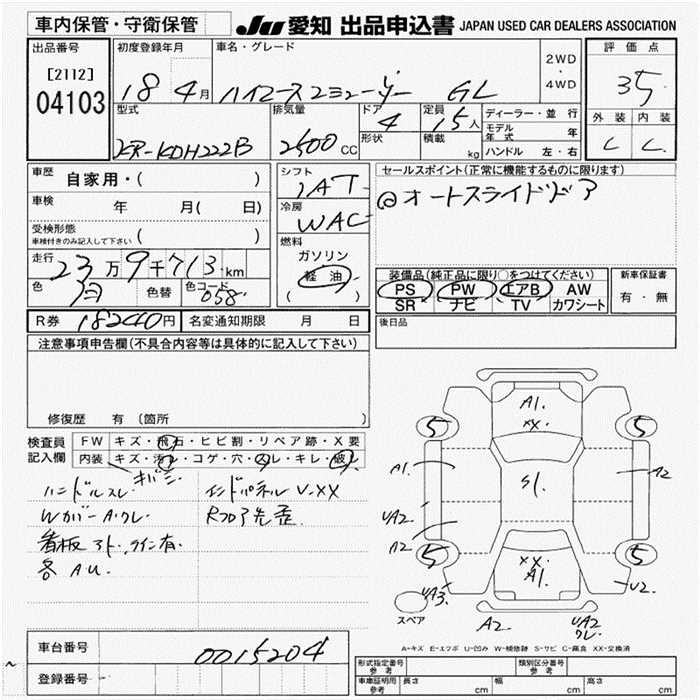 車内保管・守衛保管 JU 愛知 出品申込書 JAPAN USED CAR DEALERS ASSOCIATION
出品番号 初度登録年月 車名・グレード 2WD ・ 4WD 評価点
[2112] 04103 18 4月 ハイエースコミューター GL 35
型式 排気量 ドア 4 定員 15人 ディーラー・並行 外装 内装
形状 積載 kg モデル年式 年
KR-KDH222B 2500CC ハンドル 左・右 C C
車歴 自家用・( ) シフト IAT セールスポイント(正常に機能するものに限ります)
車検 年 月( 日) 冷房 WAC @オートスライドドア
受検形態 車検付きのみ記入して下さい ( ) 燃料 ガソリン
走行 23万9千713km 軽油 装備品(純正品に限り○をつけてください) 新車保証書
色 白 色替 色コード 058 ( ) PS PW エアB AW 有・無
SR ナビ TV カワシート
R券 18240円 名変通知期限 月 日 後日品
注意事項申告欄(不具合内容等は具体的に記入して下さい)
修復歴 有 (箇所 )
検査員記入欄 FW キズ・飛石・ヒビ割・リペア跡・X要
内装 キズ・汚レ・コゲ・穴・スレ・キレ・破レ
ハンドルスレ インドパネル V-XX
Wカバー A.ワレ Rフロア先歪
看板アト、ライン有
各 AU
A1. XX
5 5
A1 S1. A2
UA2
A2
5 5
XX A1
UA3 U2
スペア A2 UA2 ワレ
A-キズ E-エクボ U-凹み W-補修跡 S-サビ C-腐食 XX-交換済
車台番号 0015204
登録番号
形式指定番号 参考 類別区分番号 参考
車庫証明用 参考 長さ cm 幅 cm 高さ cm